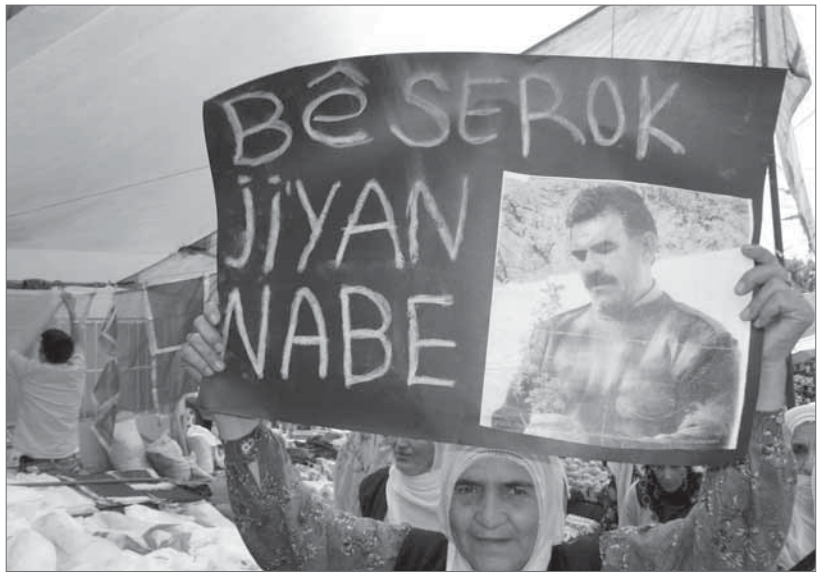 Bê SEROK
JiYAN
NABE